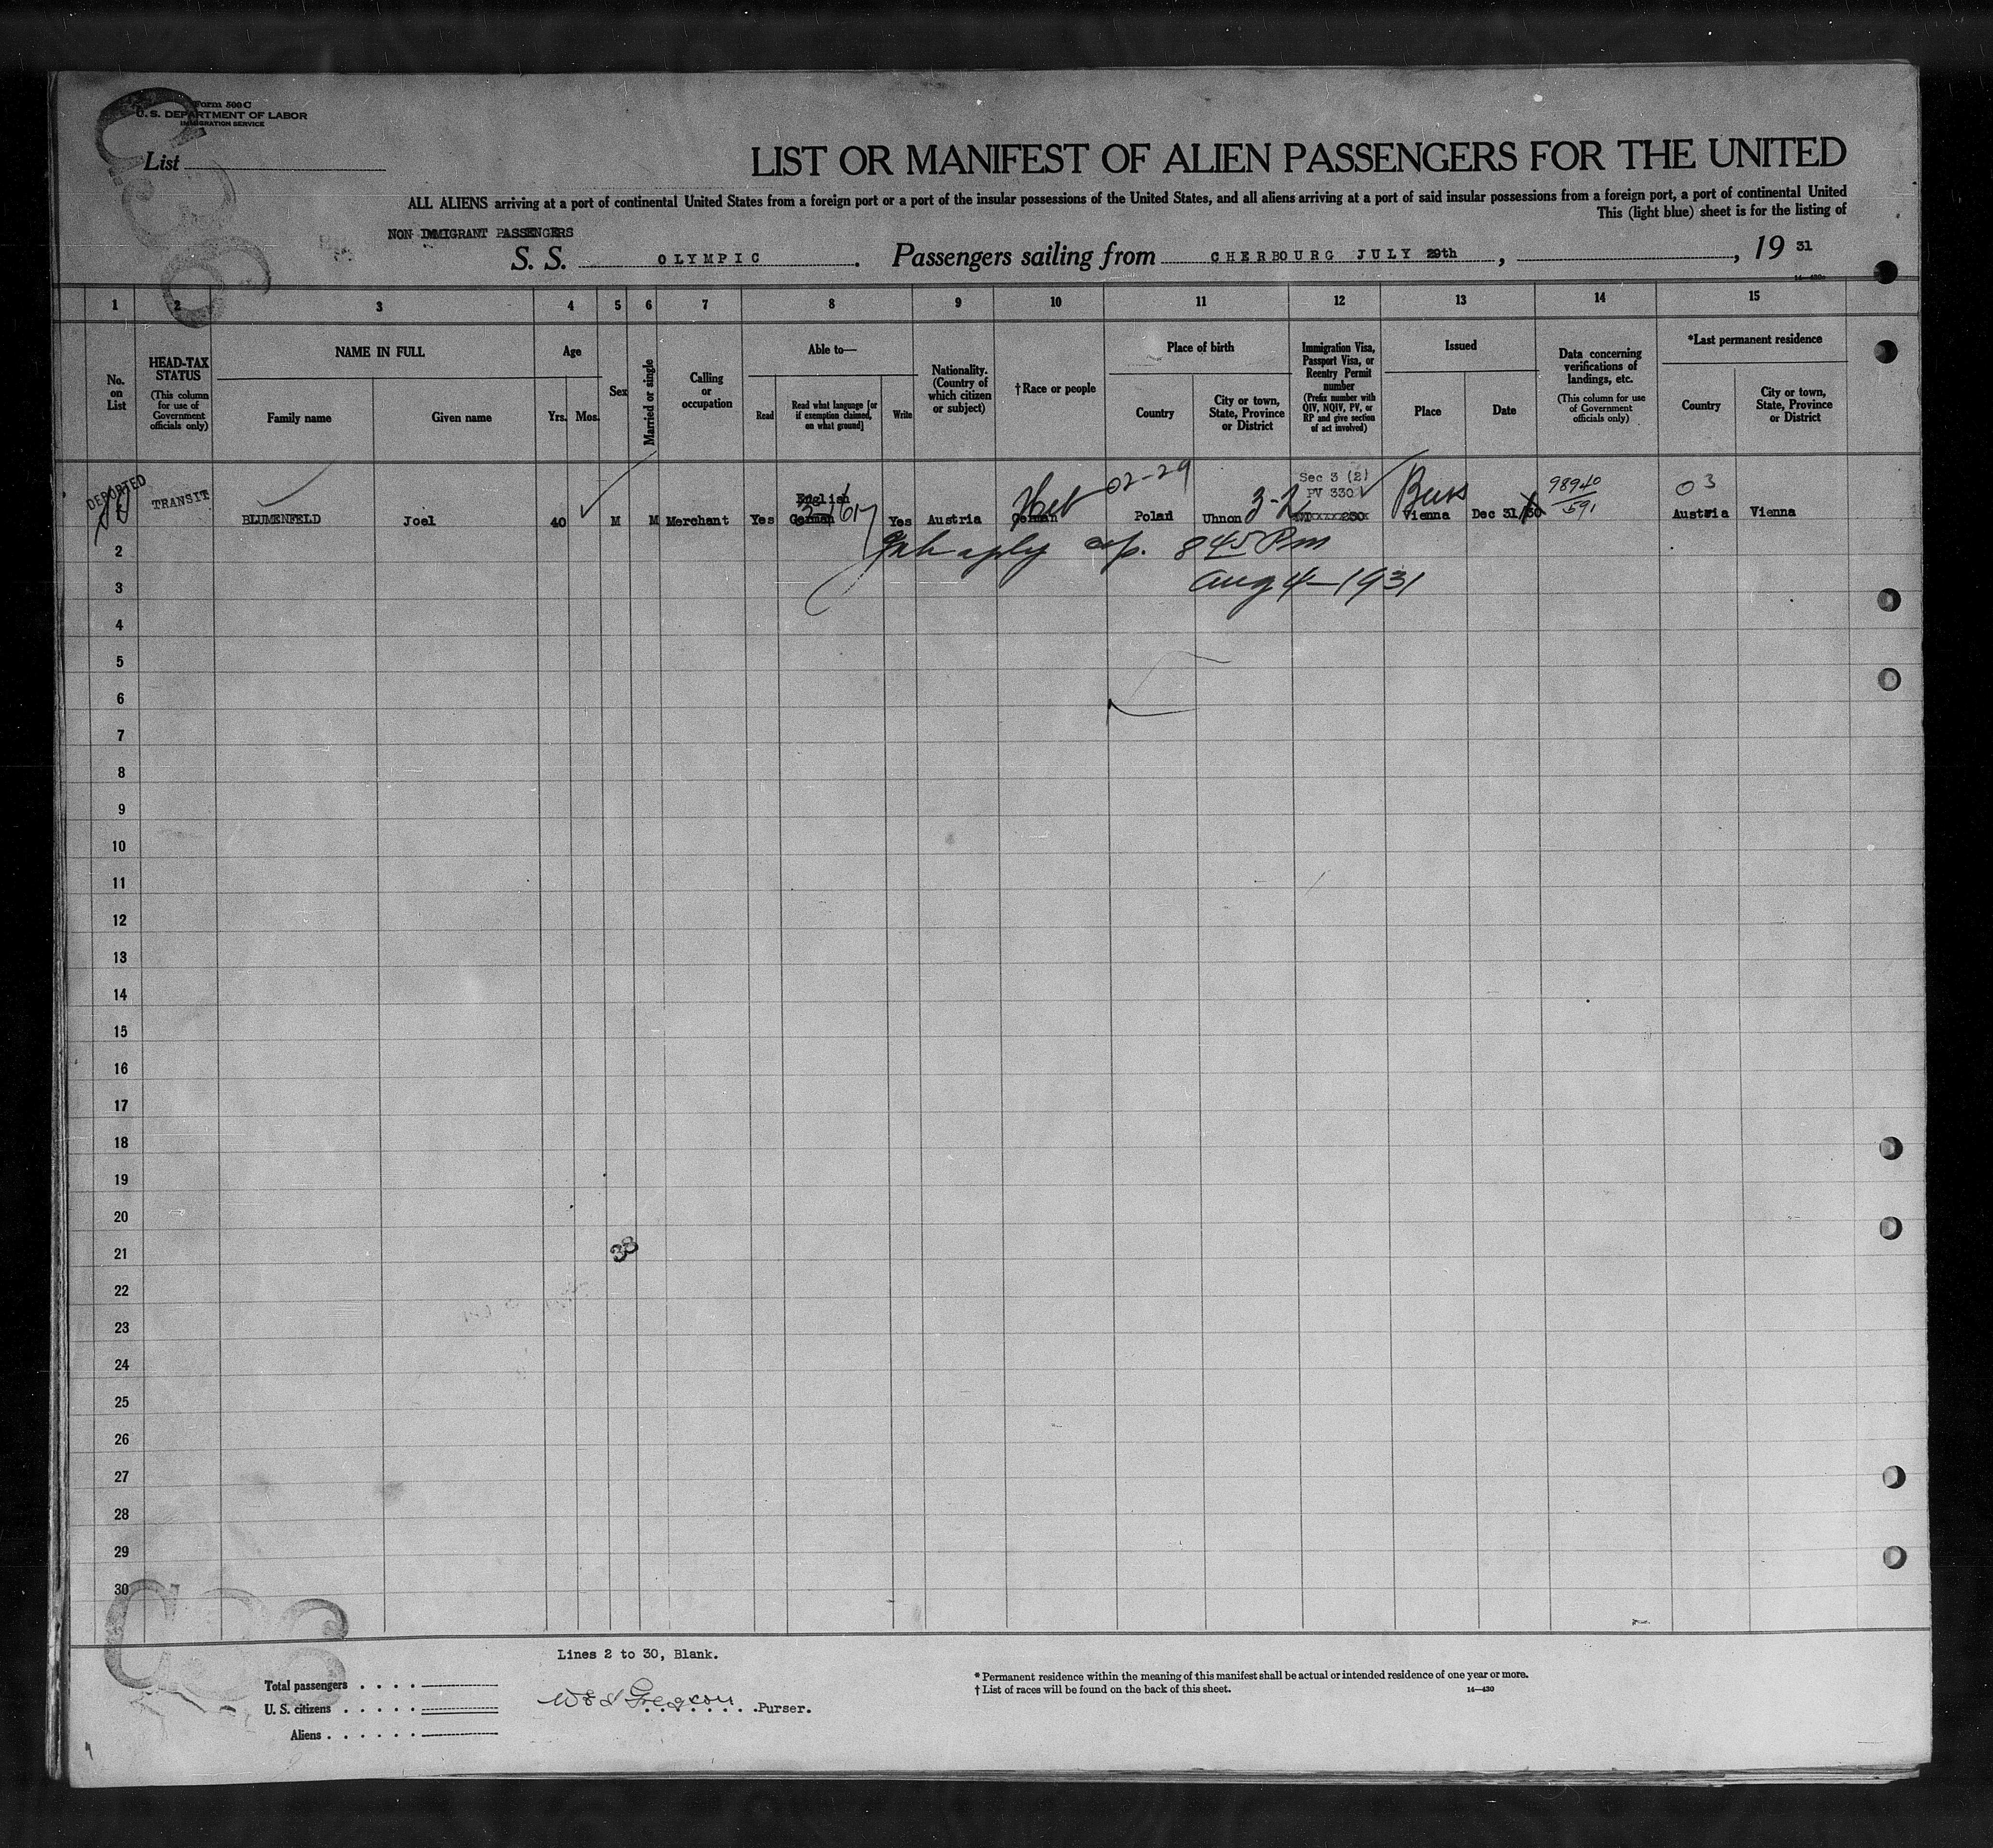 Form 500 C
U. S. DEPARTMENT OF LABOR
IMMIGRATION SERVICE
List
LIST OR MANIFEST OF ALIEN PASSENGERS FOR THE UNITED
ALL ALIENS arriving at a port of continental United States from a foreign port or a port of the insular possessions of the United States, and all aliens arriving at a port of said insular possessions from a foreign port, a port of continental United
This (light blue) sheet is for the listing of
NON IMMIGRANT PASSENGERS
S. S. OLYMPIC. Passengers sailing from CHERBOURG JULY 29th, , 19 31
14—430a
1 2 3 4 5 6 7 8 9 10 11 12 13 14 15
No. on List
HEAD-TAX STATUS
(This column for use of Government officials only)
NAME IN FULL
Family name
Given name
Age
Yrs. Mos.
Sex
Married or single
Calling or occupation
Able to—
Read
Read what language [or if exemption claimed, on what ground]
Write
Nationality. (Country of which citizen or subject)
†Race or people
Place of birth
Country
City or town, State, Province or District
Immigration Visa, Passport Visa, or Reentry Permit number
(Prefix number with QIV, NQIV, PV, or RP and give section of act involved)
Issued
Place
Date
Data concerning verifications of landings, etc.
(This column for use of Government officials only)
*Last permanent residence
Country
City or town, State, Province or District
DEPORTED TRANSIT
02-29
Sec 3 (2)
PV 330
98940
591
03
English
BLUMENFELD Joel 40 M M Merchant Yes German Yes Austria German Heb Polan Uhnon 3-2 Vienna Dec 31/30 Austria Vienna
2 8 45 Pm
3 Aug 4-1931
4
5
6
7
8
9
10
11
12
13
14
15
16
17
18
19
20
21 38
22
23
24
25
26
27
28
29
30
Lines 2 to 30, Blank.
Total passengers
U. S. citizens
Aliens
Purser.
* Permanent residence within the meaning of this manifest shall be actual or intended residence of one year or more.
† List of races will be found on the back of this sheet.
14—430